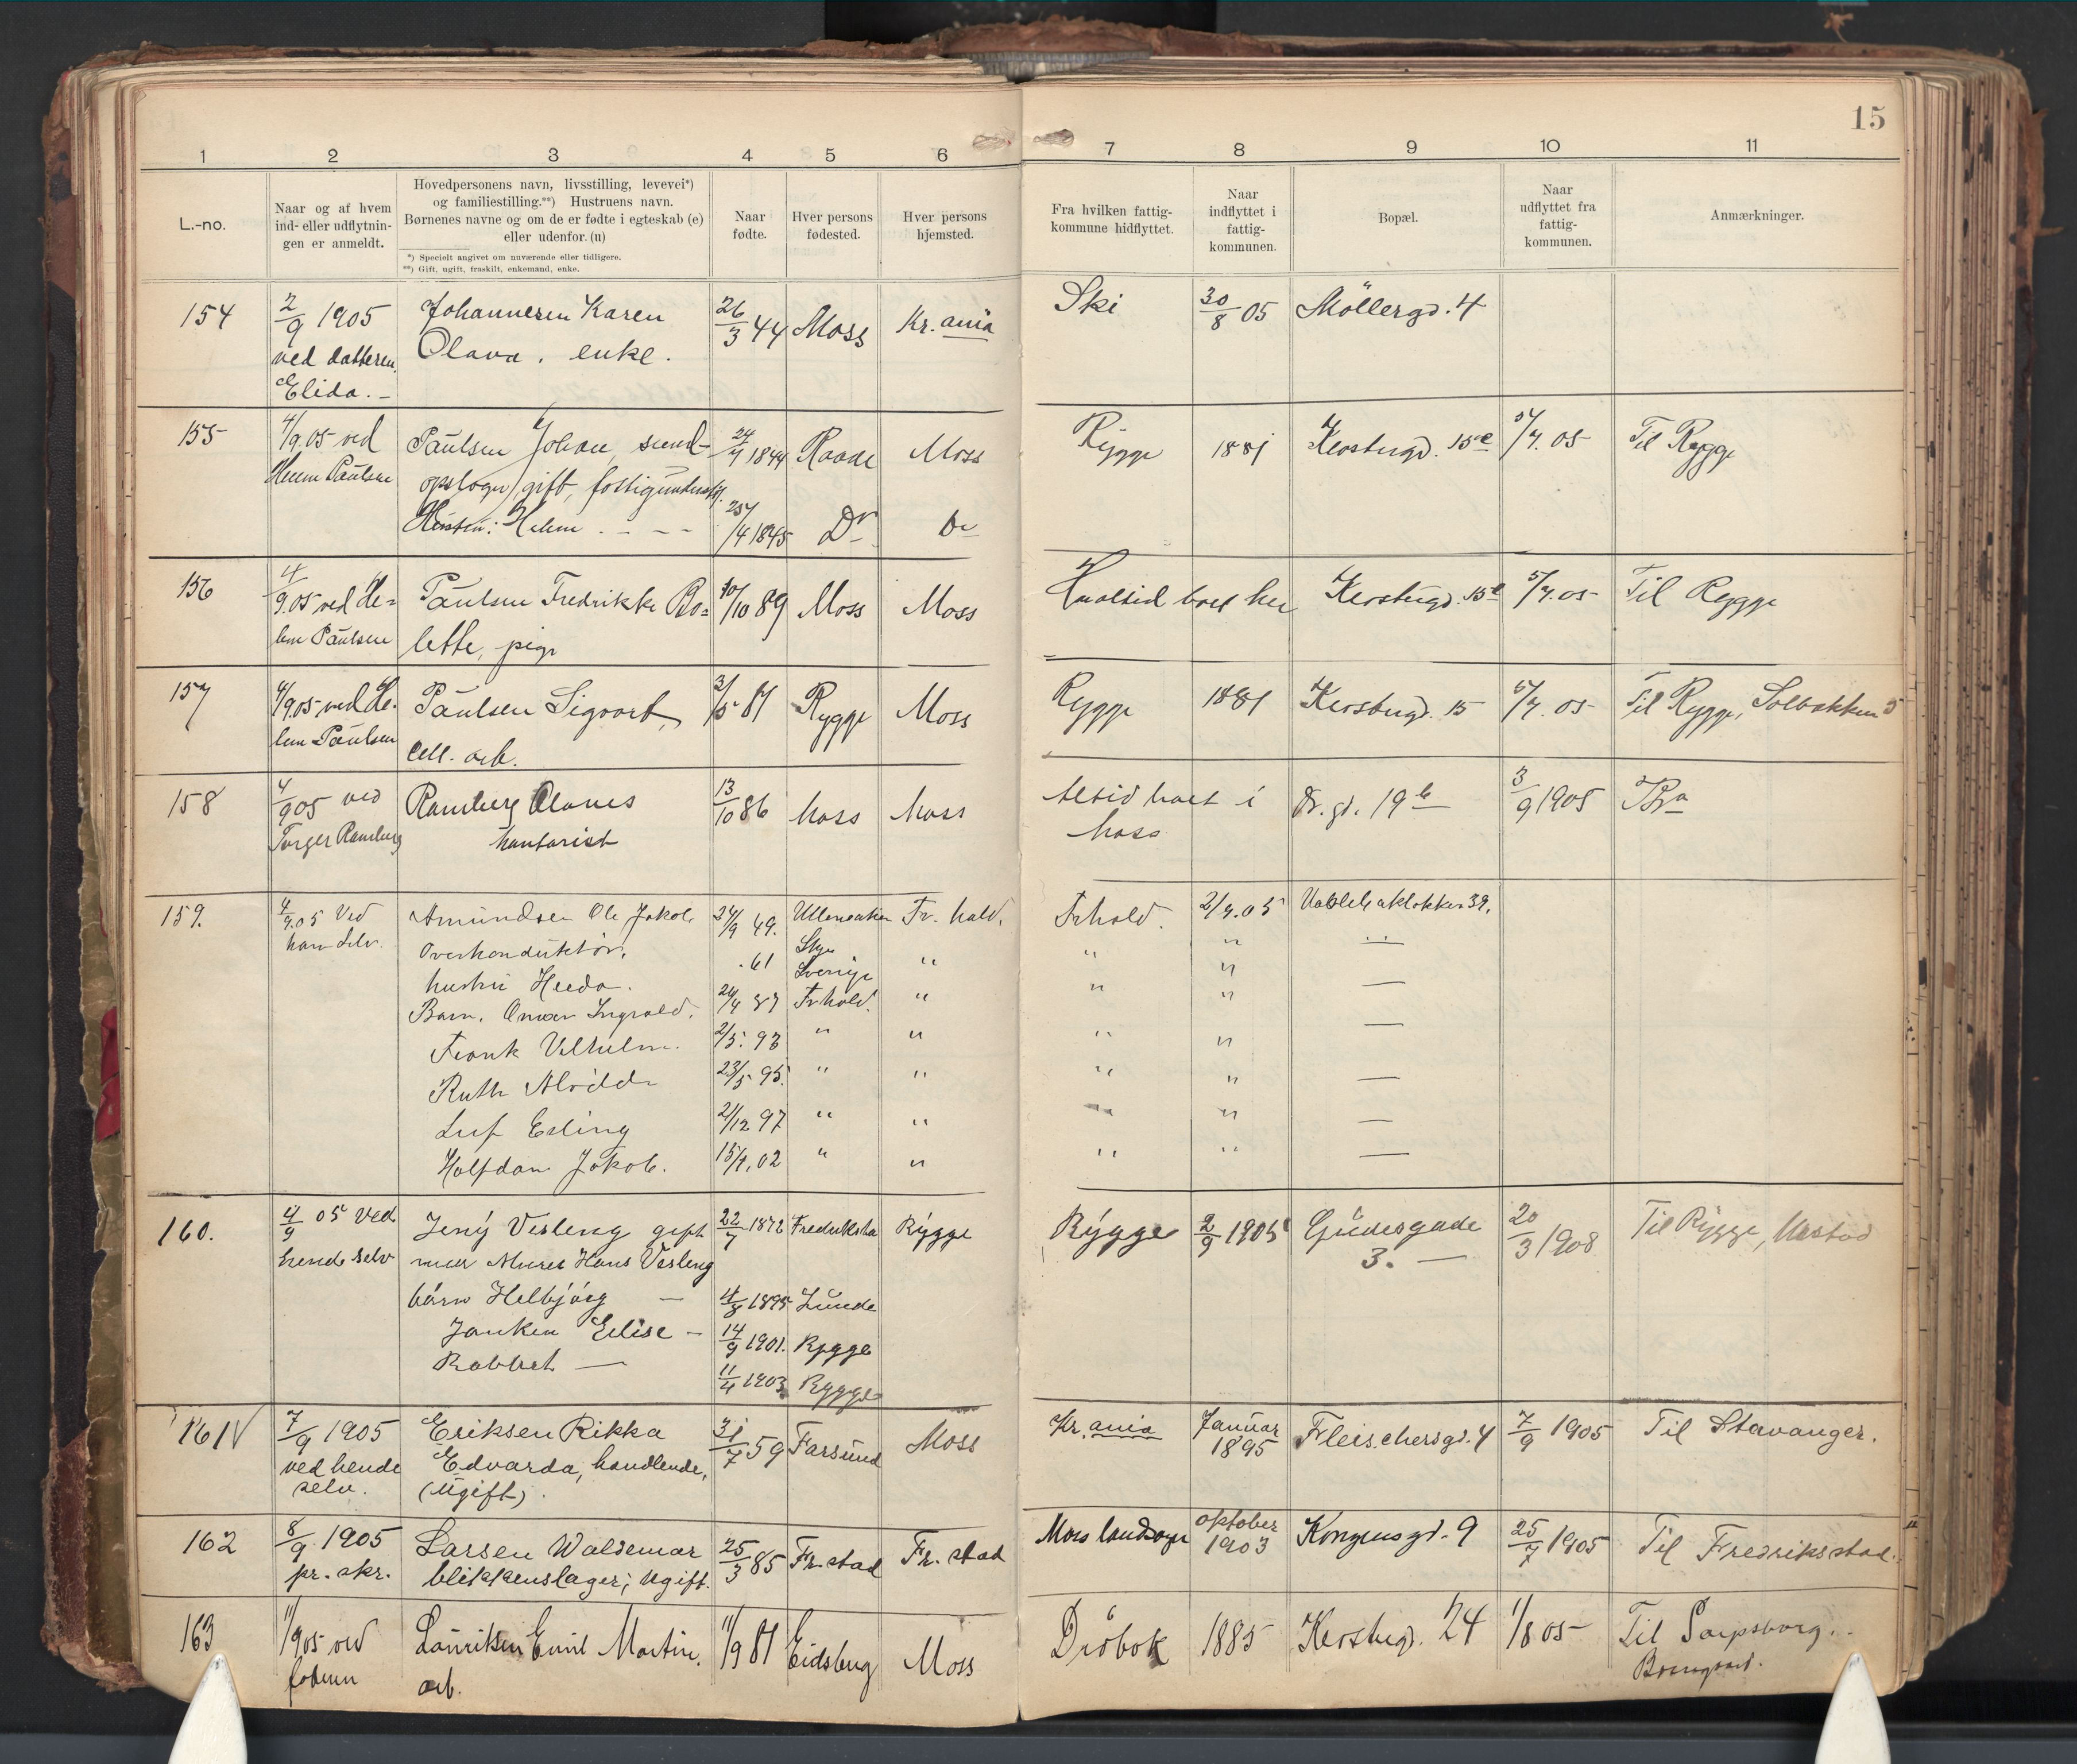 15
1 2 3 4 5 6 7 8 9 10 11
L.-no.
Naar og af hvem
ind- eller udflytnin-
gen er anmeldt.
Hovedpersonens navn, livsstilling, levevei*)
og familiestilling.**) Hustruens navn.
Børnenes navne og om de er fødte i egteskab (e)
eller udenfor. (u)
*) Specielt angivet om nuværende eller tidligere.
**) Gift, ugift, fraskilt, enkemand, enke.
Naar
fødte.
Hver persons
fødested.
Hver persons
hjemsted.
Fra hvilken fattig-
kommune hidflyttet.
Naar
indflyttet i
fattig-
kommunen.
Bopæl.
Naar
udflyttet fra
fattig-
kommunen.
Anmærkninger.
154 2/9 1905 Johannesen Karen 26/3 44 Moss Kr.ania Ski 30/8 05 Möllergd. 4
ved datteren Olava. enke.
Elida. –
155 4/9.05 ved Paulsen Johan, 1844 Raade Moss Rygge 1881 15 5/9. 05 Til Rygge
Paulsen gift,
1845 Do Do
156 4/9.05 ved He- Paulsen Fredrikke Bo- 10/10 89 Moss Moss altid boet her 15 5/9.05 Til Rygge
lene Paulsen lette, pige
157 4/9.05 ved He- Paulsen Sigvart, 3/5 81 Rygge Moss Rygge 1881 15 5/9. 05 Til Rygge, Solbakken 5
lene Paulsen Cell. arb.
158 4/9 05 ved Ramberg Olaves 13/10 86 Moss Moss Altid boet i Dr. gd. 19 b 3/9 1905
Torger Ramberg kontorist Moss
159. 4/9.05 Ved Amundsen Ole Jakob 24/9 49. Fr. hald. Frhald. 2/9.05 39.
ham selv. Overkonduktör. " "
hustru Hilda. .61 Sverige " " "
Barn. Ingvald. 24/4 87 Frhald. " " "
Frank Vilhelm. 2/5. 93 " " " "
Ruth 23/5 95. " " " "
Leif Erling 2/12 97 " " " "
Halfdan Jakob. 15/9.02 " " " "
160. 4/9 05 Ved Jeny Vesleng gift 22/7 1872 Fredriksta Rygge Rygge 2/9 1905 Gudesgade 20/3 1908 Til Rygge,
hende selv med Murer Hans Vesleng 3. —
børn Helbjörg — 4/8 1895 Lunde
Elise – 14/9 1901. Rygge
Robbert — 11/4 1903 Rygge
161 7/9 1905 Eriksen Rikka 31/7 59 Farsund Moss Kr.ania Januar 1895 Fleischersgd. 4 7/9 1905 Til Stavanger.
ved hende Edvarda, handlende,
selv. (ugift).
162 8/9 1905 Larsen Waldemar 25/3 85 Fr.stad Fr.stad Moss landsogn oktober 1903 Kongensgd. 9 25/7 1905 Til Fredriksstad.
pr. skr. blikkenslager; ugift.
163 11/9 05 ved Lauritsen Emil Martin, 11/9 81 Eidsberg Moss Dröbak 1885 24 1/8 05 Til Sarpsborg.
arb.